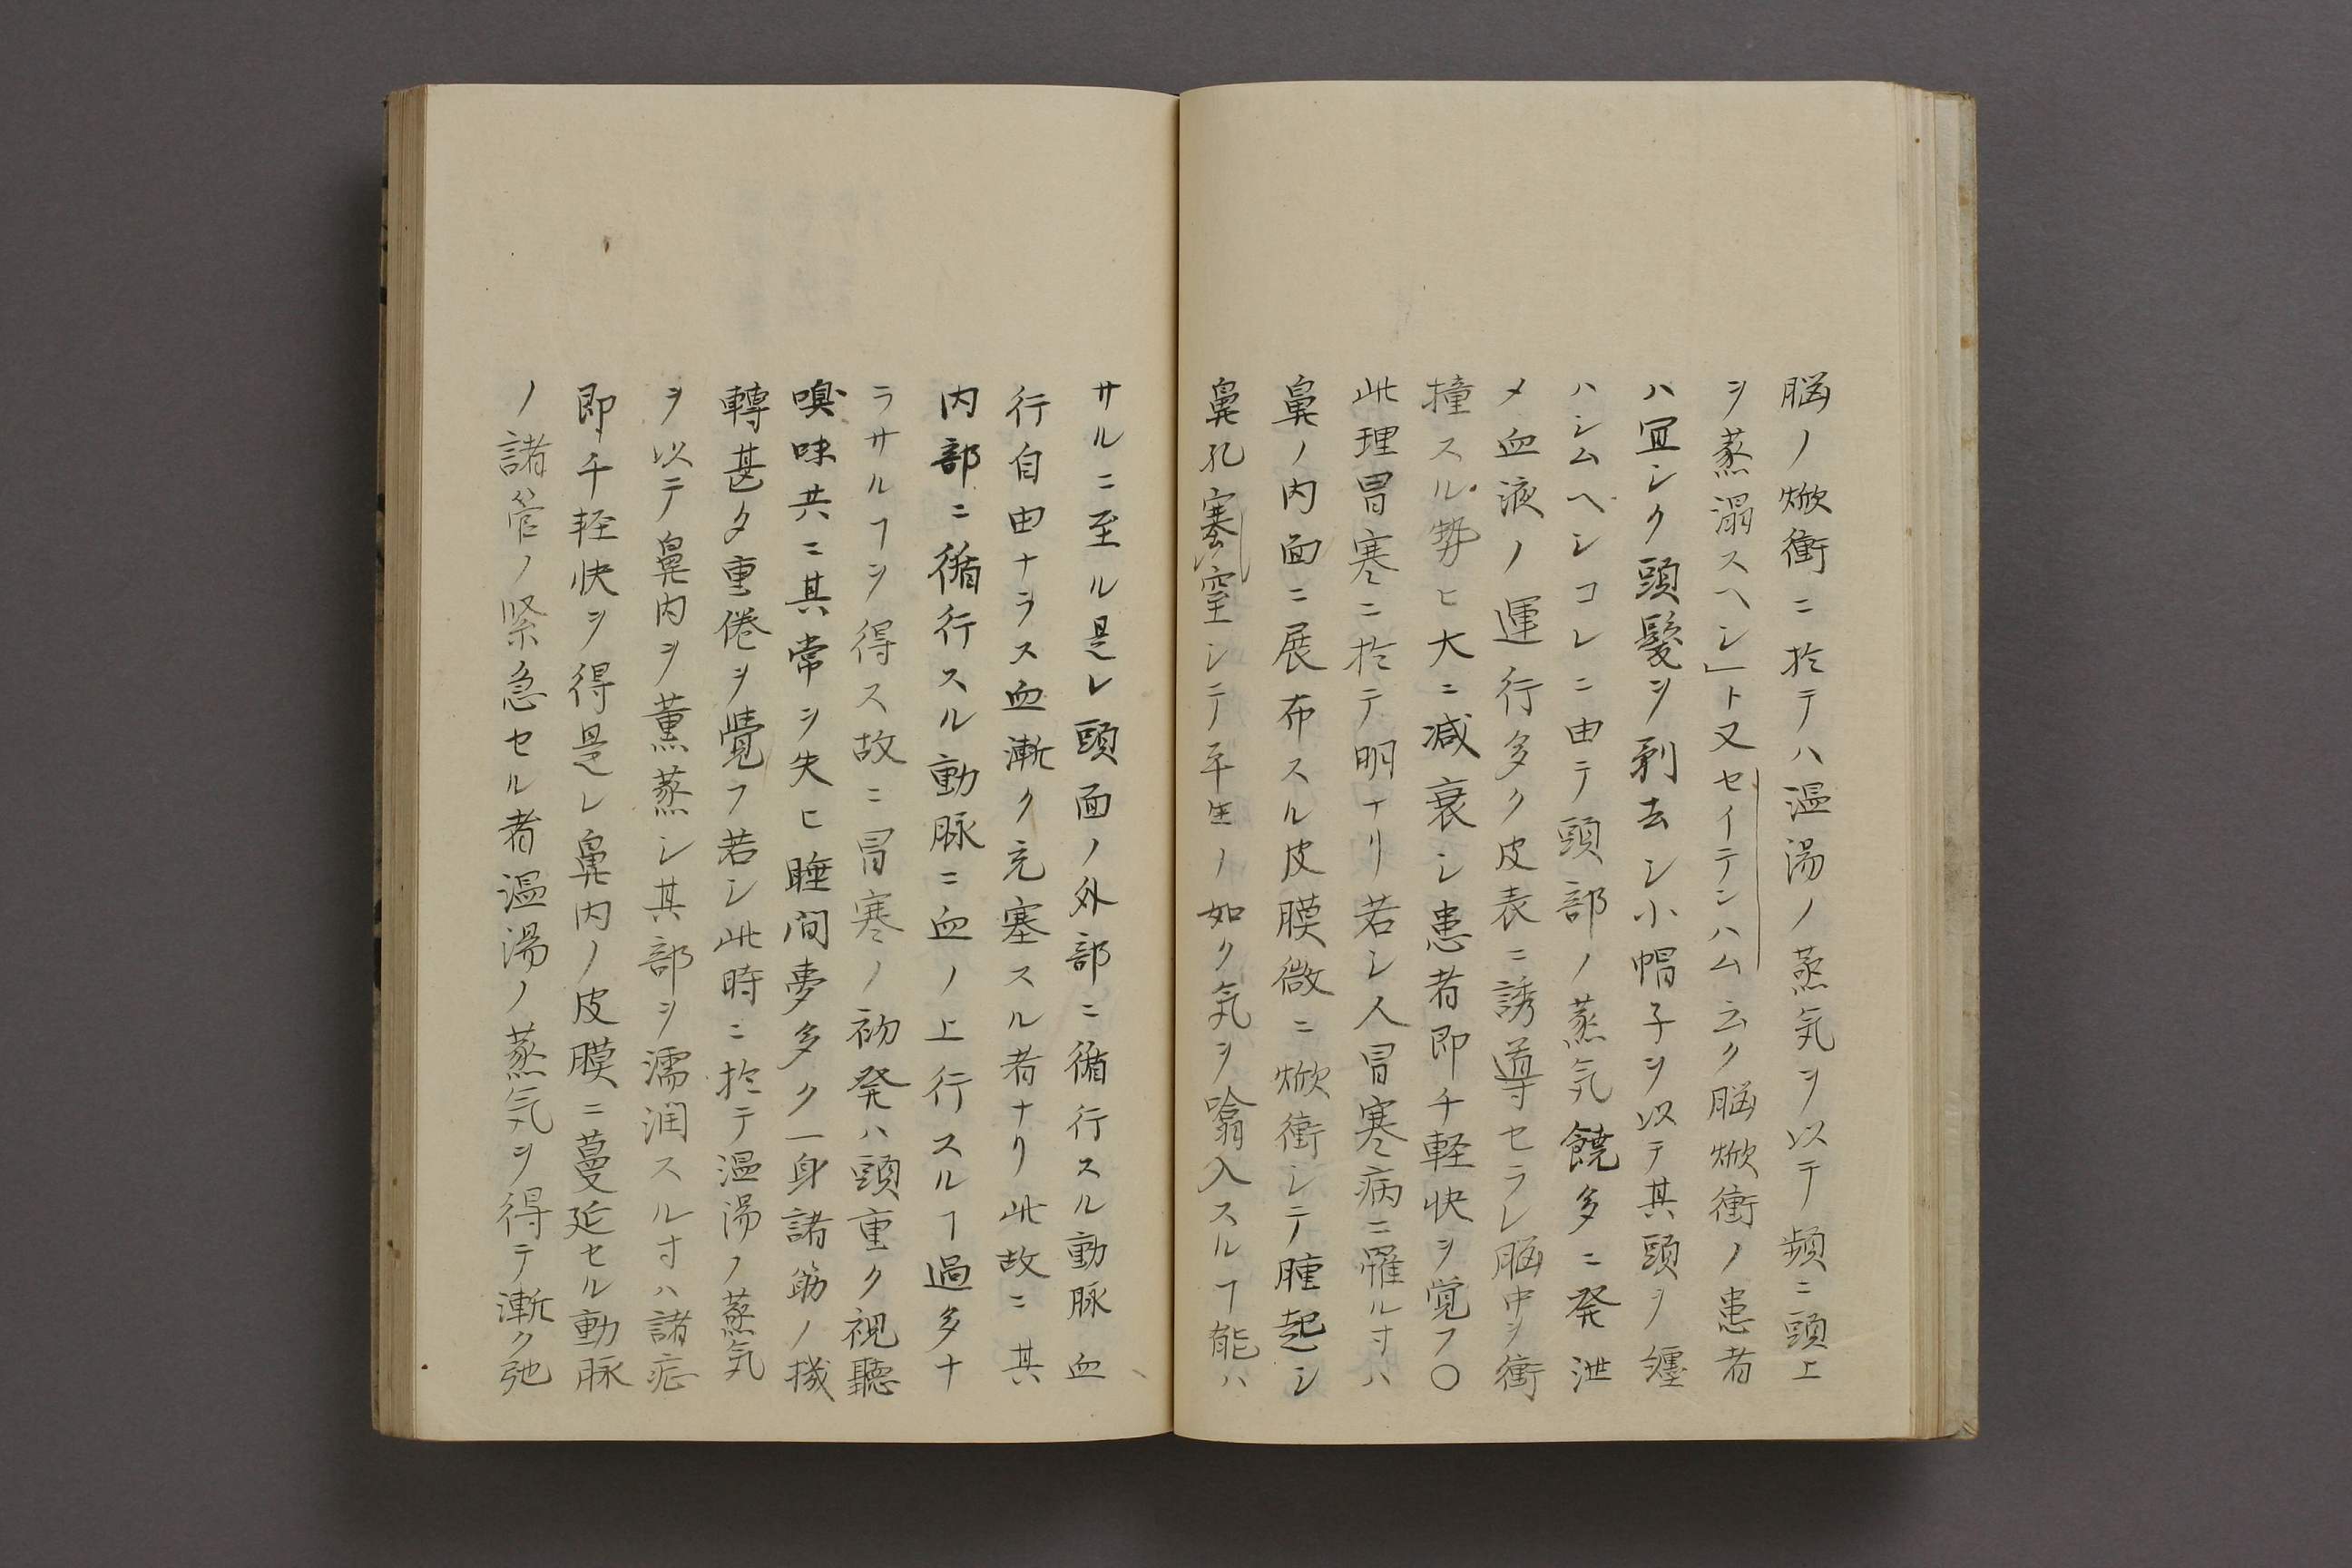 脳ノ焮衝ニ於テハ温湯ノ蒸気ヲ以テ頻ニ頭上
ヲ蒸溻スヘシ」ト又セイテンハム云ク脳焮衝ノ患者
ハ冝シク頭髪ヲ剃去シ小帽子ヲ以テ其頭ヲ纏
ハシムヘシコレニ由テ頭部ノ蒸気饒多ニ発泄
メ血液ノ運行多ク皮表ニ誘導セラレ脳中ヲ衝
撞スル勢ヒ大ニ減衰シ患者即チ軽快ヲ覚フ〇
此理冒寒ニ於テ明ナリ若シ人冒寒病ニ罹ル寸ハ
鼻ノ内面ニ展布スル皮膜微ニ焮衝シテ腫起シ
鼻孔塞窒シテ平生ノ如ク気ヲ噏入スルヿ能ハ
サルニ至ル是レ頭面ノ外部ニ循行スル動脉血
行自由ナラス血漸ク充塞スル者ナリ此故ニ其
内部ニ循行スル動脉ニ血ノ上行スルヿ過多ナ
ラサルヿヲ得ス故ニ冒寒ノ初発ハ頭重ク視聽
嗅味共ニ其常ヲ失ヒ睡間夢多ク一身諸筋ノ機
轉甚タ重倦ヲ覺フ若シ此時ニ於テ温湯ノ蒸気
ヲ以テ鼻内ヲ薫蒸シ其部ヲ濡潤スル寸ハ諸症
即チ軽快ヲ得是レ鼻内ノ皮膜ニ蔓延セル動脉
ノ諸管ノ緊急セル者温湯ノ蒸気ヲ得テ漸ク弛